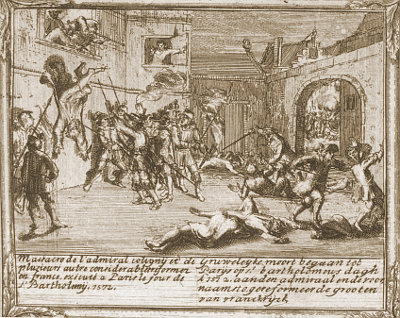 Massacre de l'admiral coligny et de
plusieurs autre considerables reformer
en france, executé a Paris le jour de
st. Bartholmy, 1572.
Gruwelyke moort begaan tot
Parys op st. bartholomeus dagh
1572. aan den admiraal en de voor
naamste gereformeerde grooten
van vranckryck